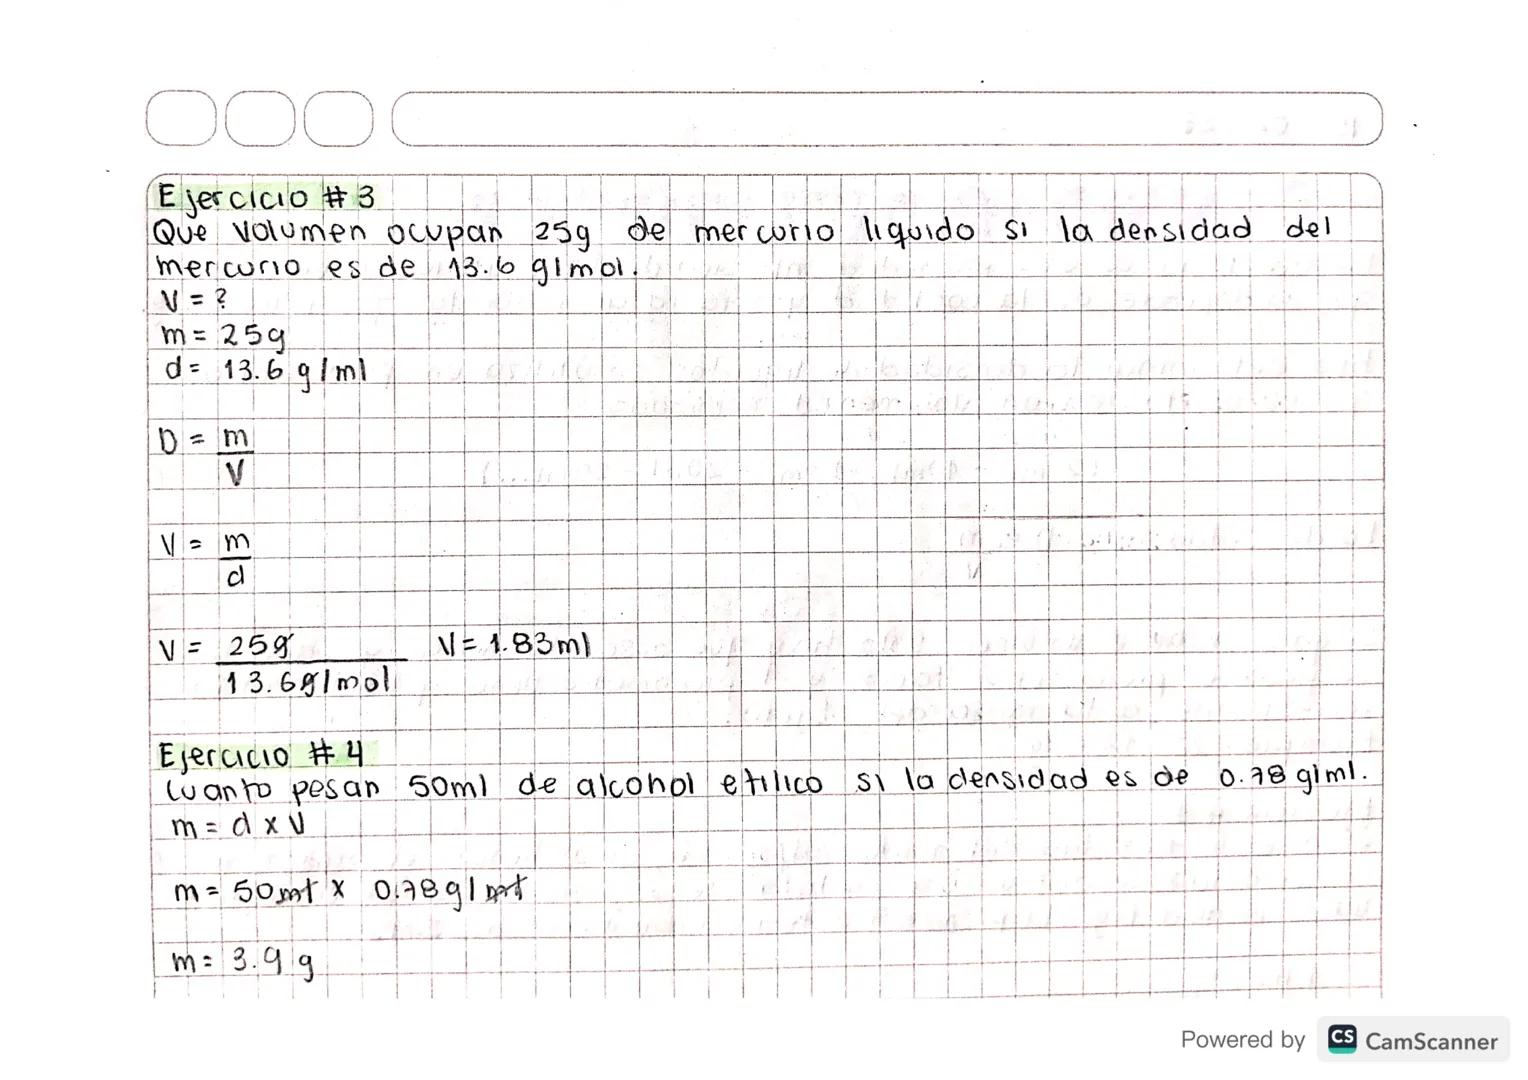 Ejercicio #3
Que volumen ocupan 25g de mercurio liquido si la densidad del
mercurio es de 13.6 g/mol.
V = ?
m = 25g
d = 13.6 g/ml
D = m
V
V = m
d
V = 25g V = 1.83ml
13.6g/mol
Ejercicio #4
Cuanto pesan 50ml de alcohol etilico si la densidad es de 0.78 g/ml.
m = d x V
m = 50ml x 0.78g/ml
m = 3.9 g
Powered by CS CamScanner